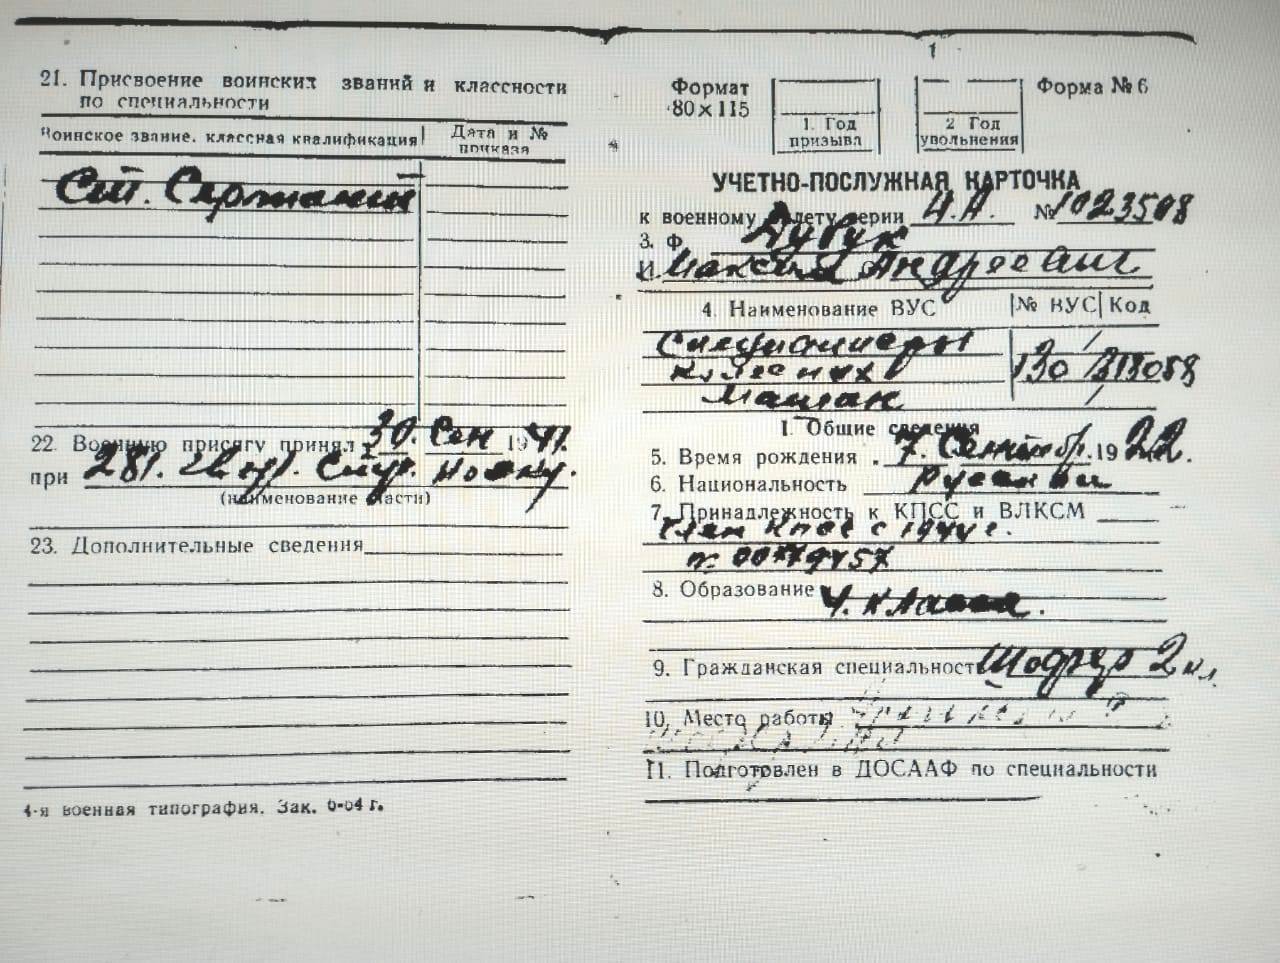 21. Присвоение воинских званий и классности
по специальности
Воинское звание, классная квалификация
Дата и №
приказа
Ст. Сержант
22. Военную присягу принял 30. Сен 1941.
при 281.
(наименование части)
23. Дополнительные сведения
4-я военная типография. Зак. 6-64 г.
1
Формат
80×115
1. Год
призыва
2 Год
увольнения
Форма № 6
УЧЕТНО-ПОСЛУЖНАЯ КАРТОЧКА
к военному билету серии Н.А. № 1023508
3. Ф Дубук
И. Максим Андреевич
4. Наименование ВУС
№ ВУС Код
колесных
Машин
130
I. Общие сведения
5. Время рождения 7. Сентябр. 1922.
6. Национальность
7. Принадлежность к КПСС и ВЛКСМ
Член КПСС с 1944 г.
8. Образование 4. класса.
9. Гражданская специальность Шофер 2 кл.
10. Место работы
11. Подготовлен в ДОСААФ по специальности